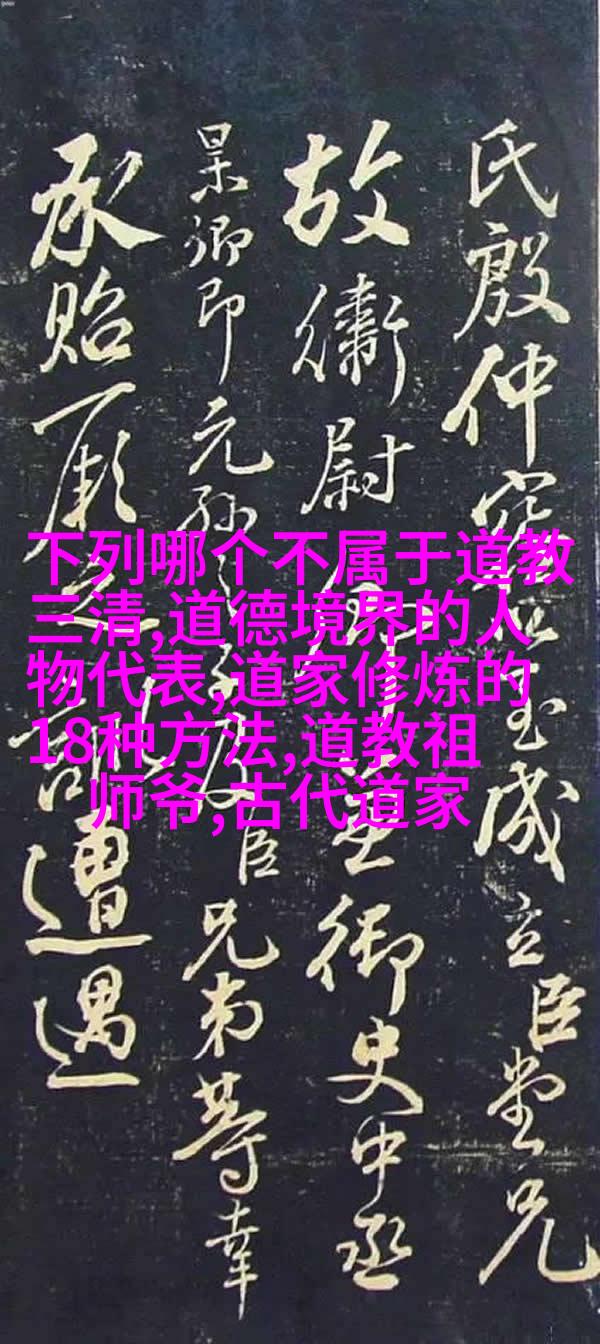 氏殷仲容以至成立臣堂兄
故衛尉卿兼御史中丞
杲卿即元孫之子及臣兄弟等幸
承貽厥之訓遭遇
下列哪个不属于道教
三清,道德境界的人
物代表,道家修炼的
18种方法,道教祖
师爷,古代道家